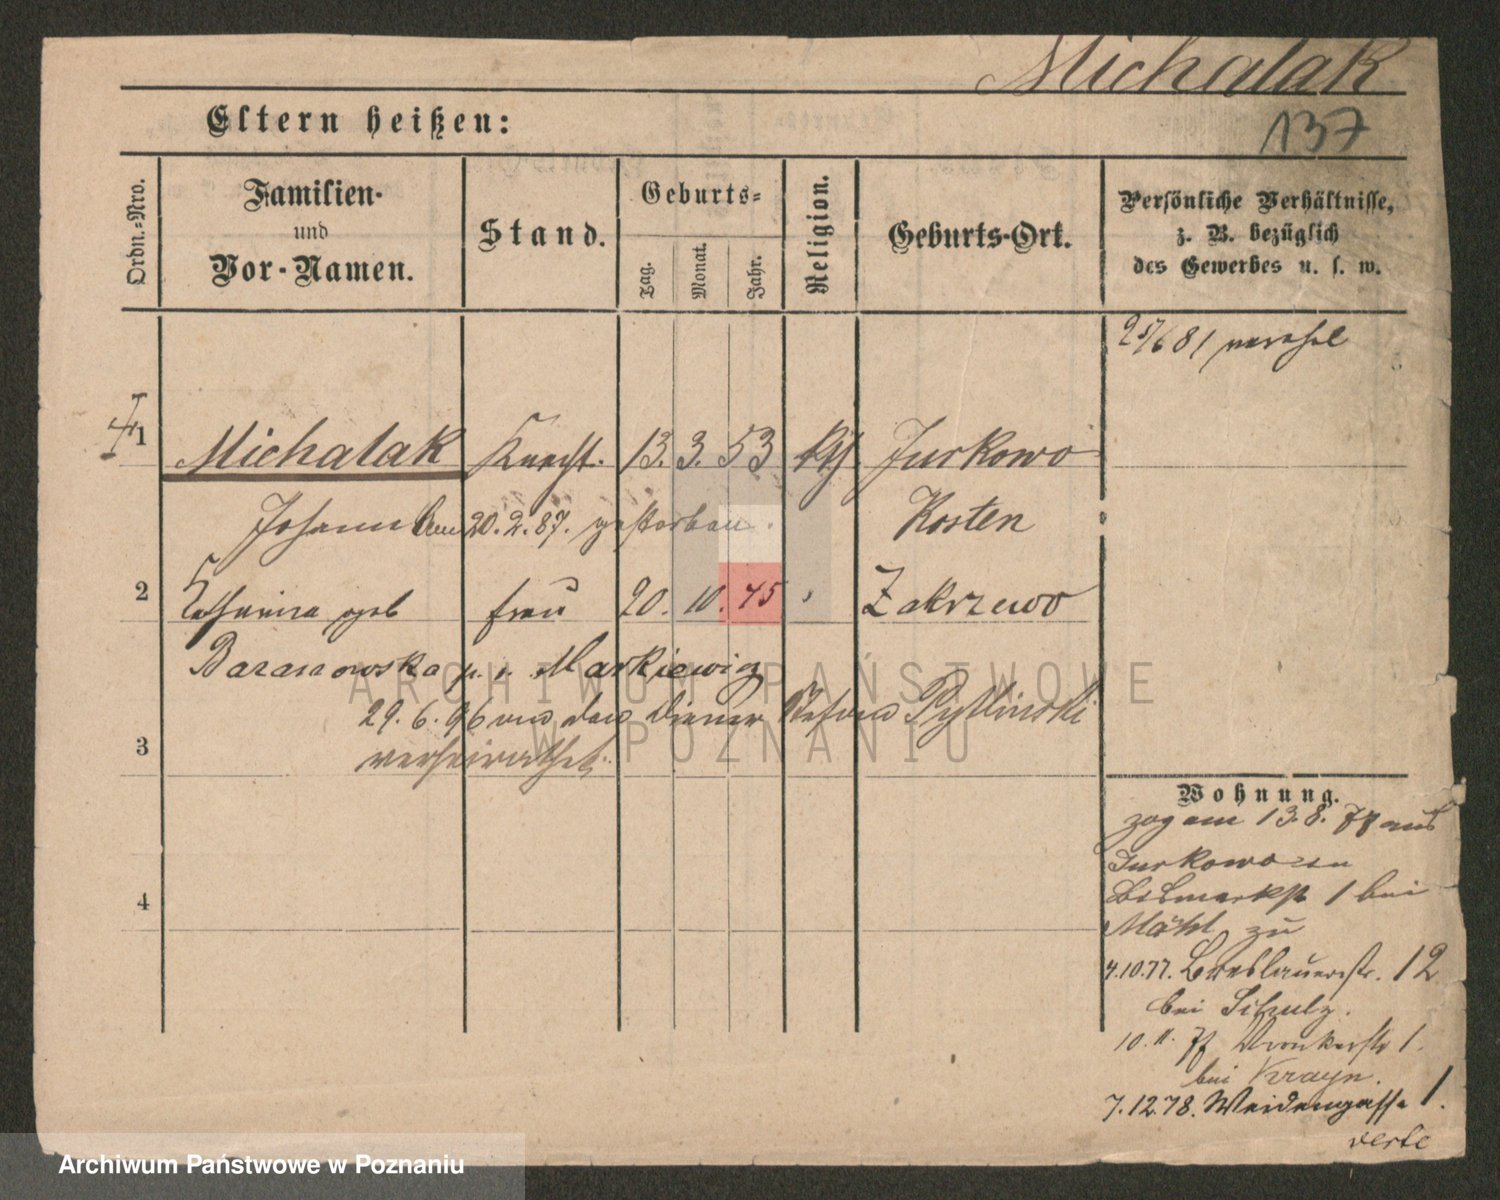 Michalak
137
Eltern heißen:
Ordn.-Nro.
Familien-
und
Vor-Namen.
Stand.
Geburts-
Tag.
Monat.
Jahr.
Religion.
Geburts-Ort.
Persönliche Verhältnisse,
z. B. bezüglich
des Gewerbes u. s. w.
25/6 81
1 Michalak Knecht. 13. 3. 53 kth Jurkowo
Johann am 20.2.87. gestorben. Kosten
2 Catharina geb frau 20. 10. 45 Zakrzewo
Baranowska Markiewicz
3 29.6.96 den Diener Stefan
verheirathet.
4
Wohnung.
zog am 13.8. aus
Jurkowo
Bismarkstr 1 bei
zu
4.10.77. Breslauerstr. 12
bei Schulz.
10.11. Wronkerstr 1.
bei Krayn.
7.12.78. Weidengasse 1.
verte
ARCHIWUM PAŃSTWOWE
W POZNANIU
Archiwum Państwowe w Poznaniu